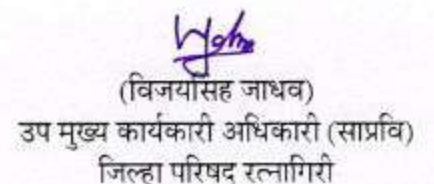 (विजयसिंह जाधव)
उप मुख्य कार्यकारी अधिकारी (साप्रवि)
जिल्हा परिषद रत्नागिरी